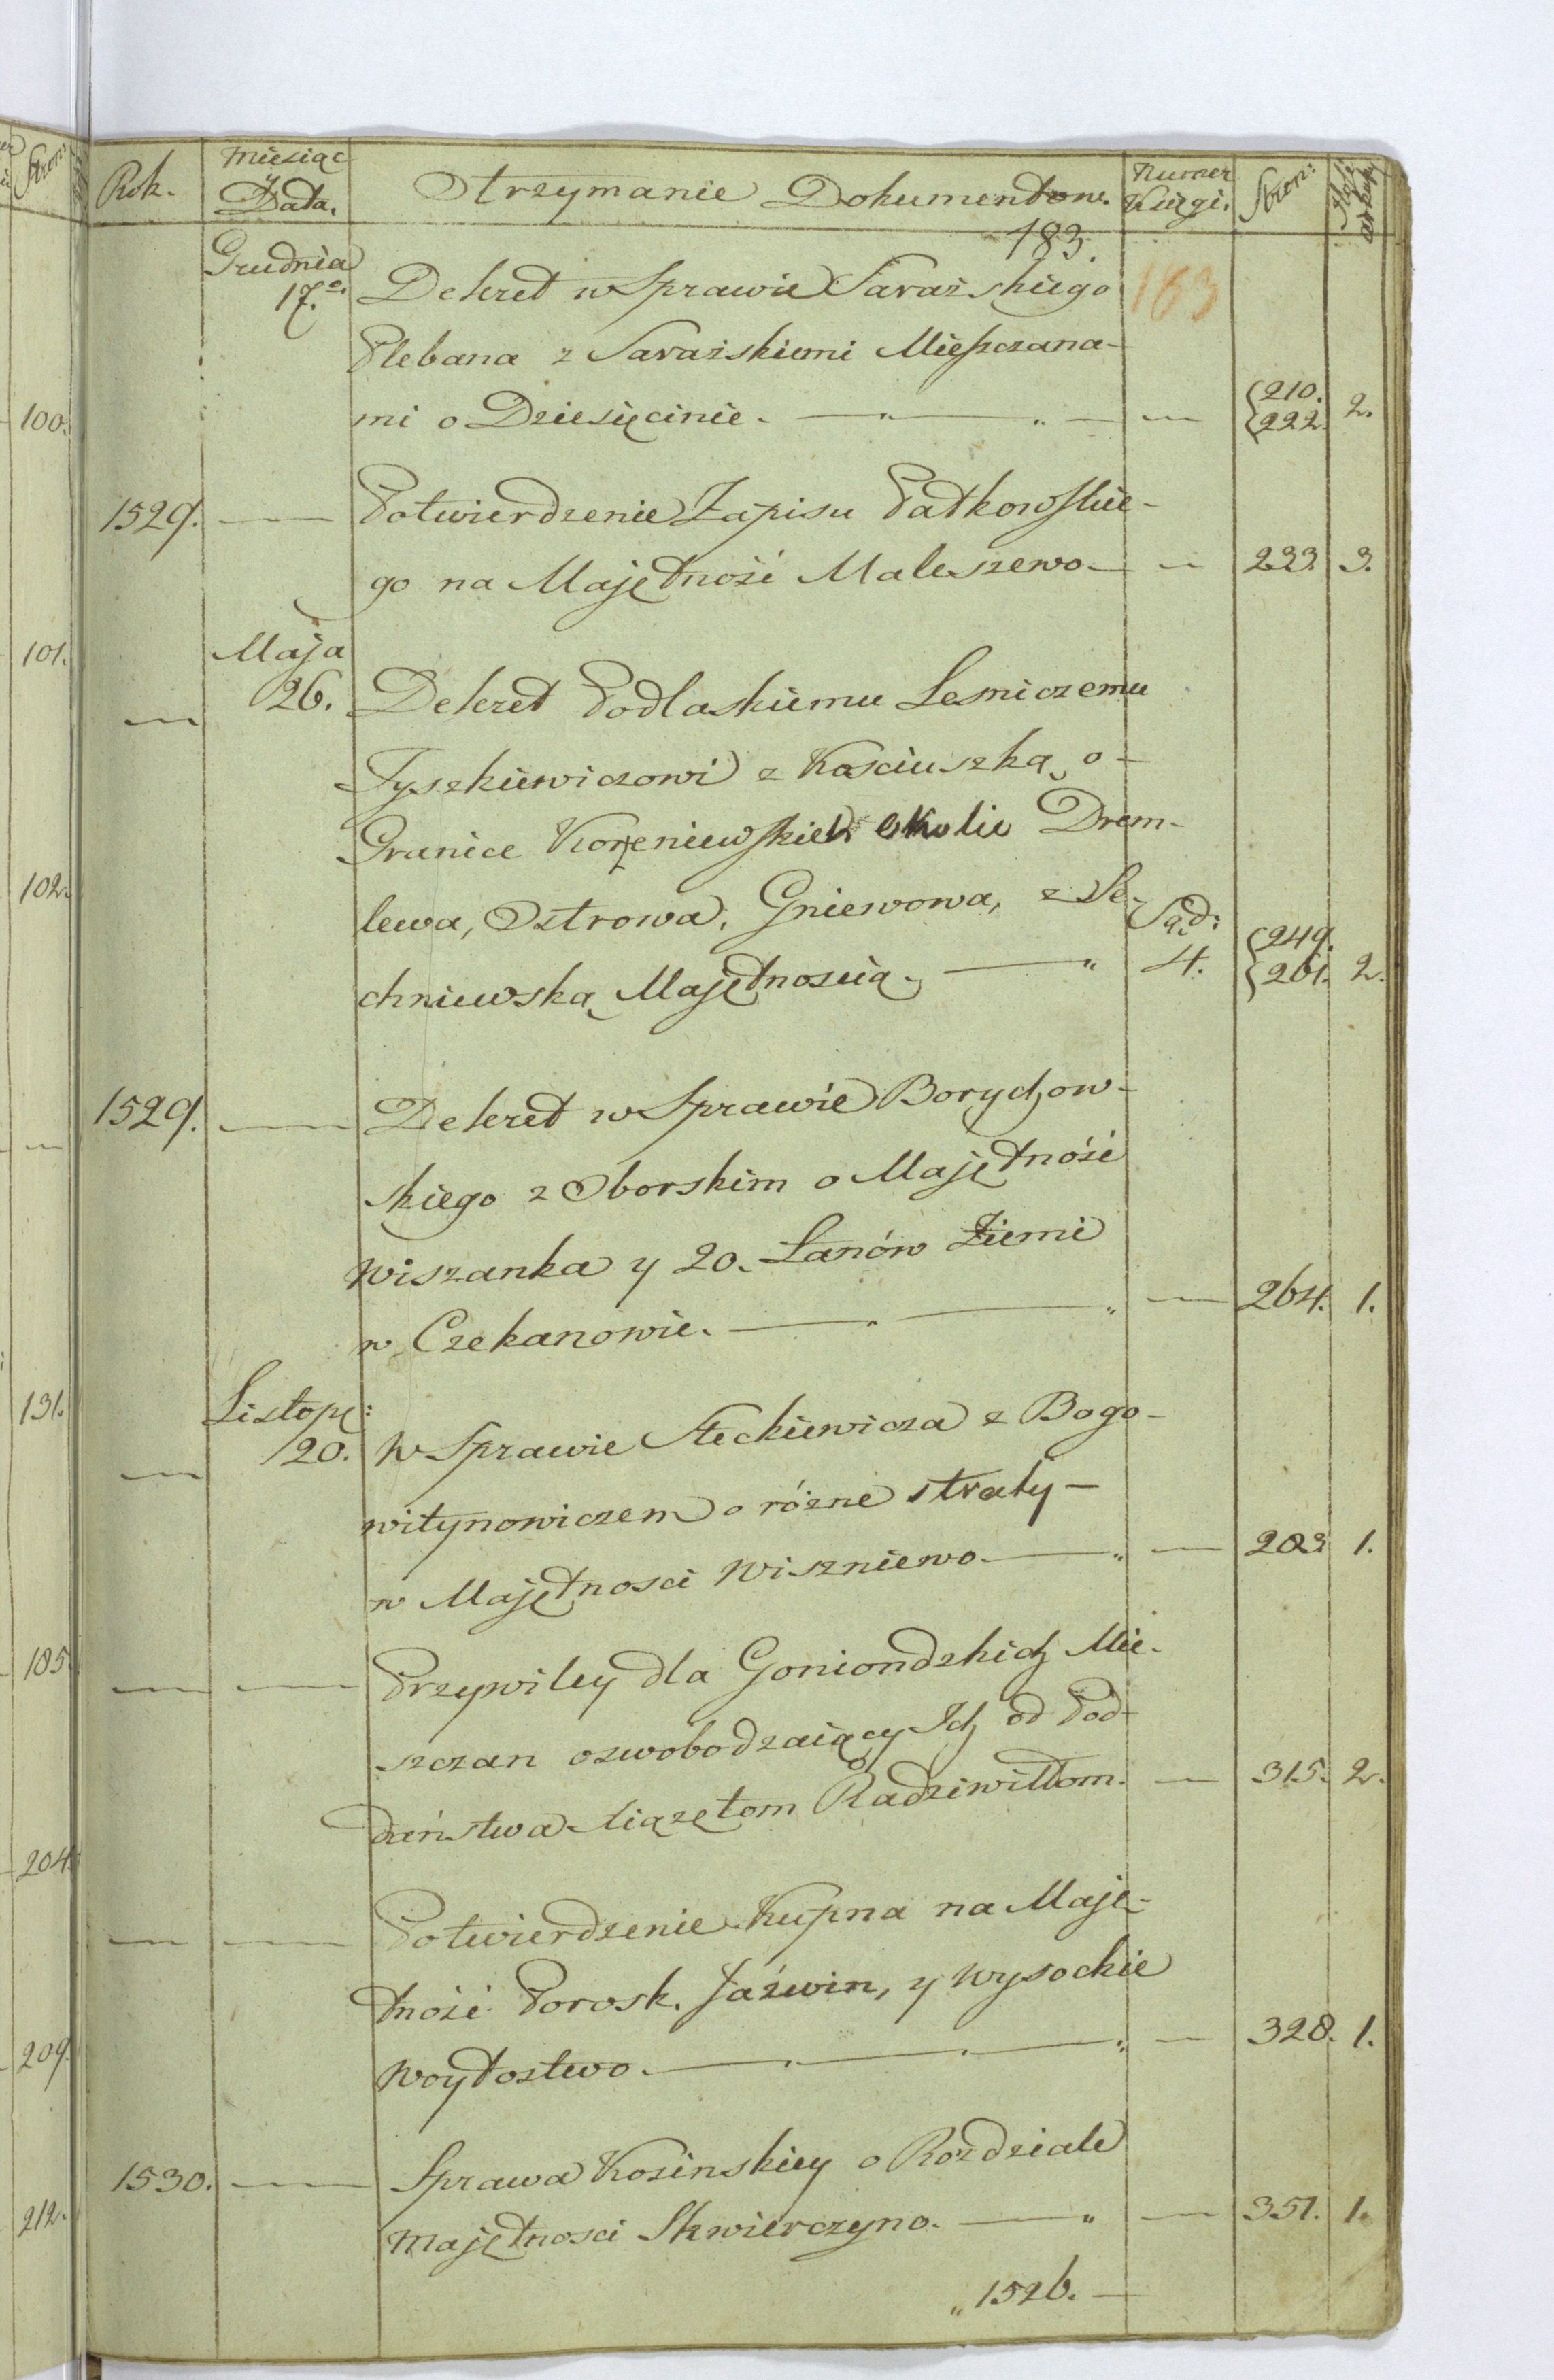 Stron:
Rok. Miesiąc Y Data. Otrzymanie Dokumentow. Numer Xięgi. Stron: Ilość arkuszy
183.
Grudnia
17.º Dekret w Sprawie Suraźskiego 183
Plebana z Suraźskiemi Mieszczana-
100. mi o Dziesięcinie. — „ — „ — — {210. {222. 2.
1529. — Potwierdzenie Zapisu Patkowskie-
go na Majętność Maleszewo — — 233. 3.
101. Maja
— 26. Dekret Podlaskiemu Lesniczemu
Tyszkiewiczowi z Kosciuszką o-
Granice Korzeniewskich okolic Drem-
102. lewa, Ostrowa, Gniewowa, z Se- Sąd:
chniewską Majętnoscią. — „ 4. {249. {261. 2.
1529. — Dekret w Sprawie Borychow-
skiego z Oborskim o Majętność
Wiszanka y 20. Łanów Ziemi
w Czekanowie. — „ — „ — 264. 1.
131. Listop:
— 20. W Sprawie Steckiewicza z Bogo-
witynowiczem o różne straty —
w Majętnosci Wiszniewo — „ — 283 1.
185. — — Przywiley dla Goniondzkich Mie-
szczan oswobodzaiący Ich od Pod-
daństwa Xiązętom Radziwiłłom. — 315. 2.
204. — — Potwierdzenie Kupna na Maję-
tność Porosk. Jaźwin, y Wysockie
209. Woytostwo. — „ — „ — „ — 328. 1.
1530. — Sprawa Kosinskiey o Rozdziale
212. Majętnosci Skwierczyno. — „ — 351. 1.
„ 1526. —